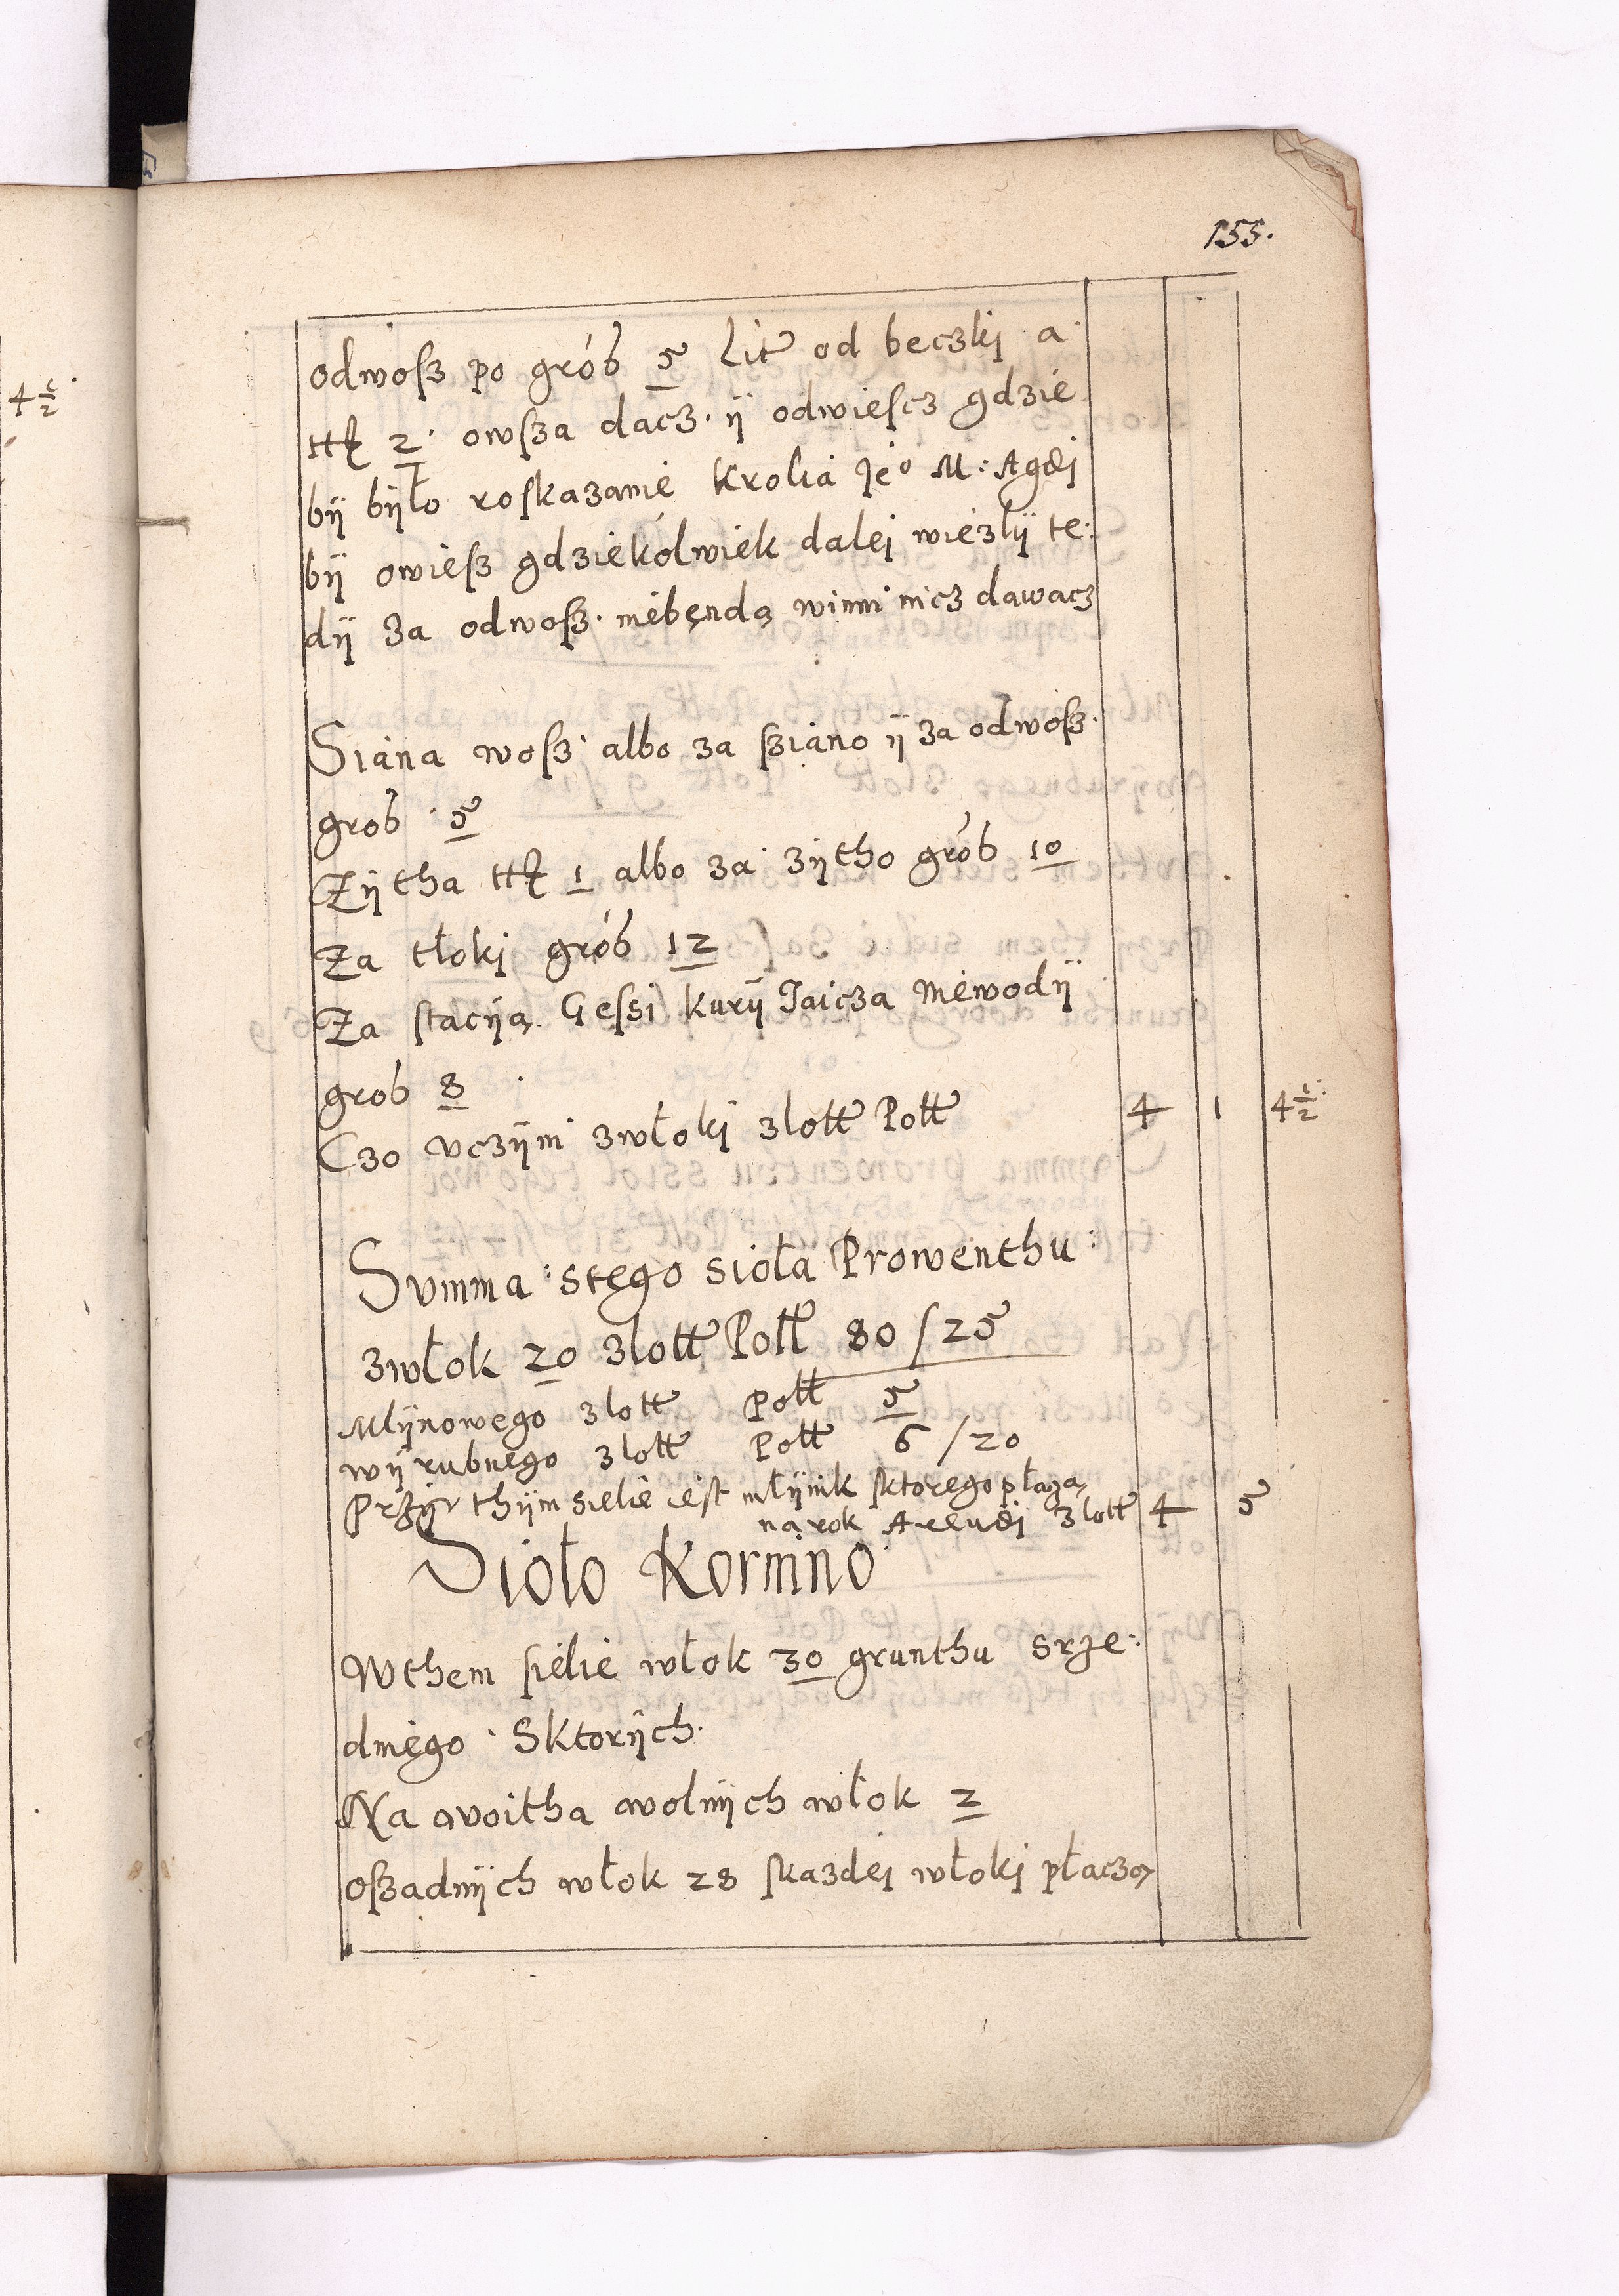 155.
4 1/2
odwosz po gròß 5 Lit od beczki a
ttꝶ 2. owsza dacz. ÿ odwiescz gdzie
bÿ bÿło roskazanie Krolia Je° M: A gdÿ
bÿ owiesz gdziekolwiek dalei wiezlÿ te:
dÿ za odwosz. niebenda̧ winni nicz dawacz
Siana wosz albo za sziano ÿ za odwosz.
groß 5
Zÿtha ttꝶ 1 albo za zÿtho gròß 10
Za tłoki gròß 12
Za stacÿa̧ Gessi Kurÿ Jaicza Niewodÿ
groß 8
Czo vczÿni zwłoki zlott Poll 4 1 4 1/2
Summa stego sioła Prowenthu:
zwłok 20 zlott Poll 80 / 25
Mlÿnowego zlott Poll 5
wÿrubnego zlott Poll 6 / 20
Przÿ thÿm sielie iest młÿnik sktorego płaza̧
na̧ rok Arendÿ zlott 4 5
Sioło Kormino
Wthem sielie włok 30 grunthu srze:
dniego Sktorÿch.
Na woitha wolnÿch włok 2
oszadnÿch włok 28 skazdei włoki płacza̧